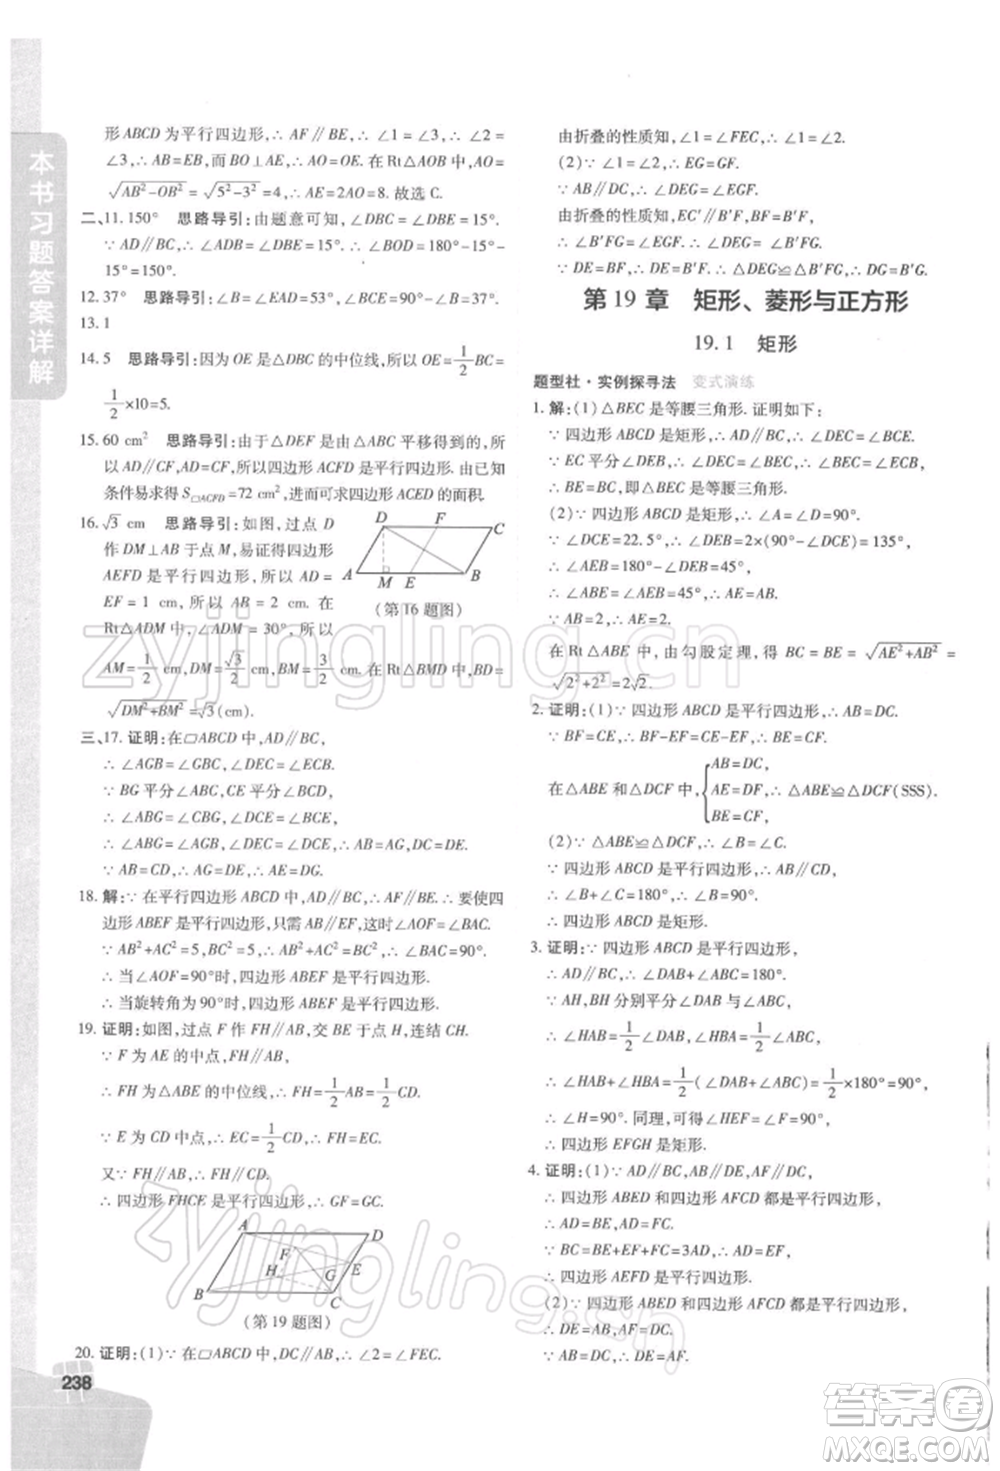 本书习题答案详解
形 ABCD 为平行四边形,∴ AF∥BE,∴ ∠1=∠2=
∠3,∴ AB=EB,而 BO⊥AE,∴ AO=OE. 在 Rt△AOB 中,AO=
√(AB²-OB²)=√(5²-3²)=4,∴ AE=2AO=8. 故选 C.
二、11. 150° 思路导引:由题意可知,∠DBC=∠DBC'=15°.
∵ AD∥BC,∴ ∠ADB=∠DBC=15°,∴ ∠BOD=180°-15°-
15°=150°.
12. 37° 思路导引:∠B=∠EAD=53°,∠BCE=90°-∠B=37°.
13. 1
14. 5 思路导引:因为 OE 是△DBC 的中位线,所以 OE=1/2 BC=
1/2×10=5.
15. 60 cm² 思路导引:由于△DEF 是由△ABC 平移得到的,所
以 AD∥CF,所以四边形 ACFD 是平行四边形. 由已知
条件易求得 S□ACFD=72 cm²,进而可求四边形 ACED 的面积.
16. √3 cm 思路导引:如图,过点 D
作 DM⊥AB 于点 M,易证得四边形
AEFD 是平行四边形,所以 AD=
EF=1 cm,所以 AB=2 cm. 在
Rt△ADM 中,∠ADM=30°,所以
AM=1/2 cm,DM=√3/2 cm,BM=3/2 cm. 在 Rt△BMD 中,BD=
√(DM²+BM²)=√3(cm).
D F C
A M E B
(第16题图)
三、17. 证明:在□ABCD 中,AD∥BC,
∴ ∠AGB=∠GBC,∠DEC=∠BCE.
∵ BG 平分∠ABC,CE 平分∠BCD,
∴ ∠ABG=∠GBC,∠BCE=∠DCE,
∴ ∠ABG=∠AGB,∠DEC=∠DCE,∴ AB=AG,DC=DE.
∵ AB=CD,∴ AG=DE,∴ AE=DG.
18. 解:∵ 在平行四边形 ABCD 中,AD∥BC,∴ AF∥BE,∴ 要使四
边形 ABEF 是平行四边形,只需 AB∥EF,这时∠AOF=∠BAC.
∵ AB²+AC²=5,BC²=5,∴ AB²+AC²=BC²,∴ ∠BAC=90°,
∴ 当∠AOF=90°时,四边形 ABEF 是平行四边形.
∴ 当旋转角为 90°时,四边形 ABEF 是平行四边形.
19. 证明:如图,过点 F 作 FH∥AB,交 BE 于点 H,连结 CH.
∵ F 为 AE 的中点,FH∥AB,
∴ FH 为△ABE 的中位线,∴ FH=1/2 AB=1/2 CD.
∵ E 为 CD 中点,∴ EC=1/2 CD,∴ FH=EC.
又∵ FH∥AB,∴ FH∥CD.
∴ 四边形 FHCE 是平行四边形,∴ GF=GC.
A D
F E
H G
B C
(第19题图)
20. 证明:(1)∵ 在□ABCD 中,DC∥AB,∴ ∠2=∠FEC.
238
由折叠的性质知,∠1=∠FEC,∴ ∠1=∠2.
(2)∵ ∠1=∠2,∴ EG=GF.
∵ AB∥DC,∴ ∠DEG=∠EGF.
由折叠的性质知,EC'∥B'F,∴ ∠B'FG=∠EGF,
∴ ∠B'FG=∠DEG.
∵ DE=BF=B'F,∴ △DEG≌△B'FG,∴ DG=B'G.
第 19 章 矩形、菱形与正方形
19.1 矩形
题型社·实例探寻法 变式演练
1. 解:(1)△BEC 是等腰三角形. 证明如下:
∵ 四边形 ABCD 是矩形,∴ AD∥BC,∴ ∠DEC=∠BCE.
∵ EC 平分∠DEB,∴ ∠DEC=∠BEC,∴ ∠BEC=∠ECB,
∴ BE=BC,即△BEC 是等腰三角形.
(2)∵ 四边形 ABCD 是矩形,∴ ∠A=∠D=90°.
∵ ∠DCE=22.5°,∴ ∠DEB=2×(90°-∠DCE)=135°,
∴ ∠AEB=180°-∠DEB=45°,
∴ ∠ABE=90°-∠AEB=45°.
∵ AB=2,∴ AE=2.
在 Rt△ABE 中,由勾股定理,得 BC=BE=√(AE²+AB²)=
√(2²+2²)=2√2.
2. 证明:(1)∵ 四边形 ABCD 是平行四边形,∴ AB=DC.
∵ BF=CE,∴ BF-EF=CE-EF,∴ BE=CF.
在△ABE 和△DCF 中,{AB=DC, AE=DF, BE=CF, ∴ △ABE≌△DCF(SSS).
(2)∵ △ABE≌△DCF,∴ ∠B=∠C.
∵ 四边形 ABCD 是平行四边形,∴ AB∥CD,
∴ ∠B+∠C=180°,∴ ∠B=90°.
∴ 四边形 ABCD 是矩形.
3. 证明:∵ 四边形 ABCD 是平行四边形,
∴ AD∥BC,∴ ∠DAB+∠ABC=180°.
∵ AH,BH 分别平分∠DAB 与∠ABC,
∴ ∠HAB=1/2∠DAB,∠HBA=1/2∠ABC,
∴ ∠HAB+∠HBA=1/2(∠DAB+∠ABC)=1/2×180°=90°,
∴ ∠H=90°. 同理,可得∠HEF=∠F=90°,
∴ 四边形 EFGH 是矩形.
4. 证明:(1)∵ AD∥BC,AB∥DE,AF∥DC,
∴ 四边形 ABED 和四边形 AFCD 都是平行四边形,
∴ AD=BE,AD=FC.
∵ BC=BE+EF+FC=3AD,∴ AD=EF.
∴ 四边形 AEFD 是平行四边形.
(2)∵ 四边形 ABED 和四边形 AFCD 都是平行四边形,
∴ DE=AB,AF=DC.
∵ AB=DC,∴ DE=AF.
zyjingling.cn
zyjingling.cn
答案圈
MXQE.COM